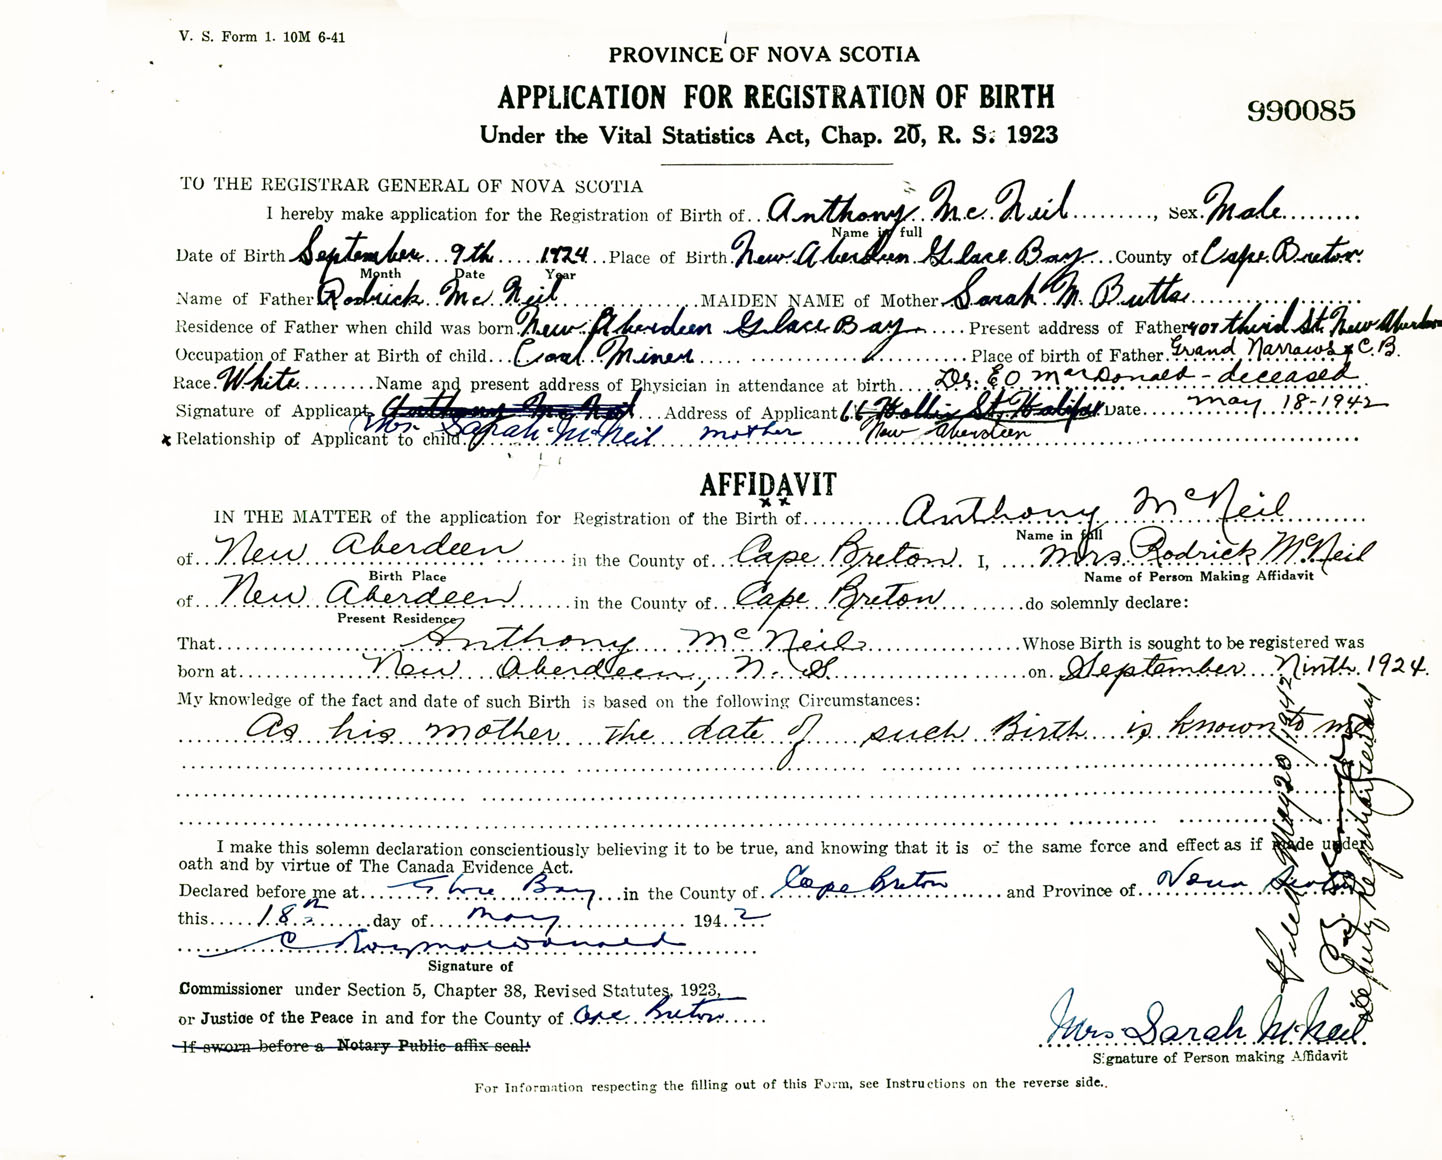 V. S. Form 1. 10M 6-41
PROVINCE OF NOVA SCOTIA
APPLICATION FOR REGISTRATION OF BIRTH
990085
Under the Vital Statistics Act, Chap. 20, R. S. 1923
TO THE REGISTRAR GENERAL OF NOVA SCOTIA
I hereby make application for the Registration of Birth of Anthony Mc Neil, Sex Male
Name in full
Date of Birth September 9th 1924 Place of Birth New Aberdeen Glace Bay County of Cape Breton
Month Date Year
Name of Father Rodrick Mc Neil MAIDEN NAME of Mother Sarah M. Butts
Residence of Father when child was born New Aberdeen Glace Bay Present address of Father 407 third St. New Aberdeen
Occupation of Father at Birth of child Coal Miner Place of birth of Father Grand Narrows C.B.
Race White Name and present address of Physician in attendance at birth Dr. E O MacDonald - deceased
Signature of Applicant Anthony Mc Neil Address of Applicant 66 Hollis St. Halifax Date may 18-1942
x Relationship of Applicant to child Mrs. Sarah McNeil mother New Aberdeen
AFFIDAVIT
x x
IN THE MATTER of the application for Registration of the Birth of Anthony McNeil
Name in full
of New Aberdeen in the County of Cape Breton I, Mrs Rodrick McNeil
Birth Place Name of Person Making Affidavit
of New Aberdeen in the County of Cape Breton do solemnly declare:
Present Residence
That Anthony McNeil Whose Birth is sought to be registered was
born at New Aberdeen, N. S on September Ninth 1924.
My knowledge of the fact and date of such Birth is based on the following Circumstances:
As his mother the date of such Birth is known to me
I make this solemn declaration conscientiously believing it to be true, and knowing that it is of the same force and effect as if made under
oath and by virtue of The Canada Evidence Act.
Declared before me at Glace Bay in the County of Cape Breton and Province of Nova Scotia
this 18th day of May 1942
C Roy MacDonald
Signature of
Commissioner under Section 5, Chapter 38, Revised Statutes, 1923,
or Justice of the Peace in and for the County of Cape Breton
If sworn before a Notary Public affix seal.
Mrs Sarah McNeil
Signature of Person making Affidavit
For Information respecting the filling out of this Form, see Instructions on the reverse side.
Filed May 20/1942
Deputy Registrar General